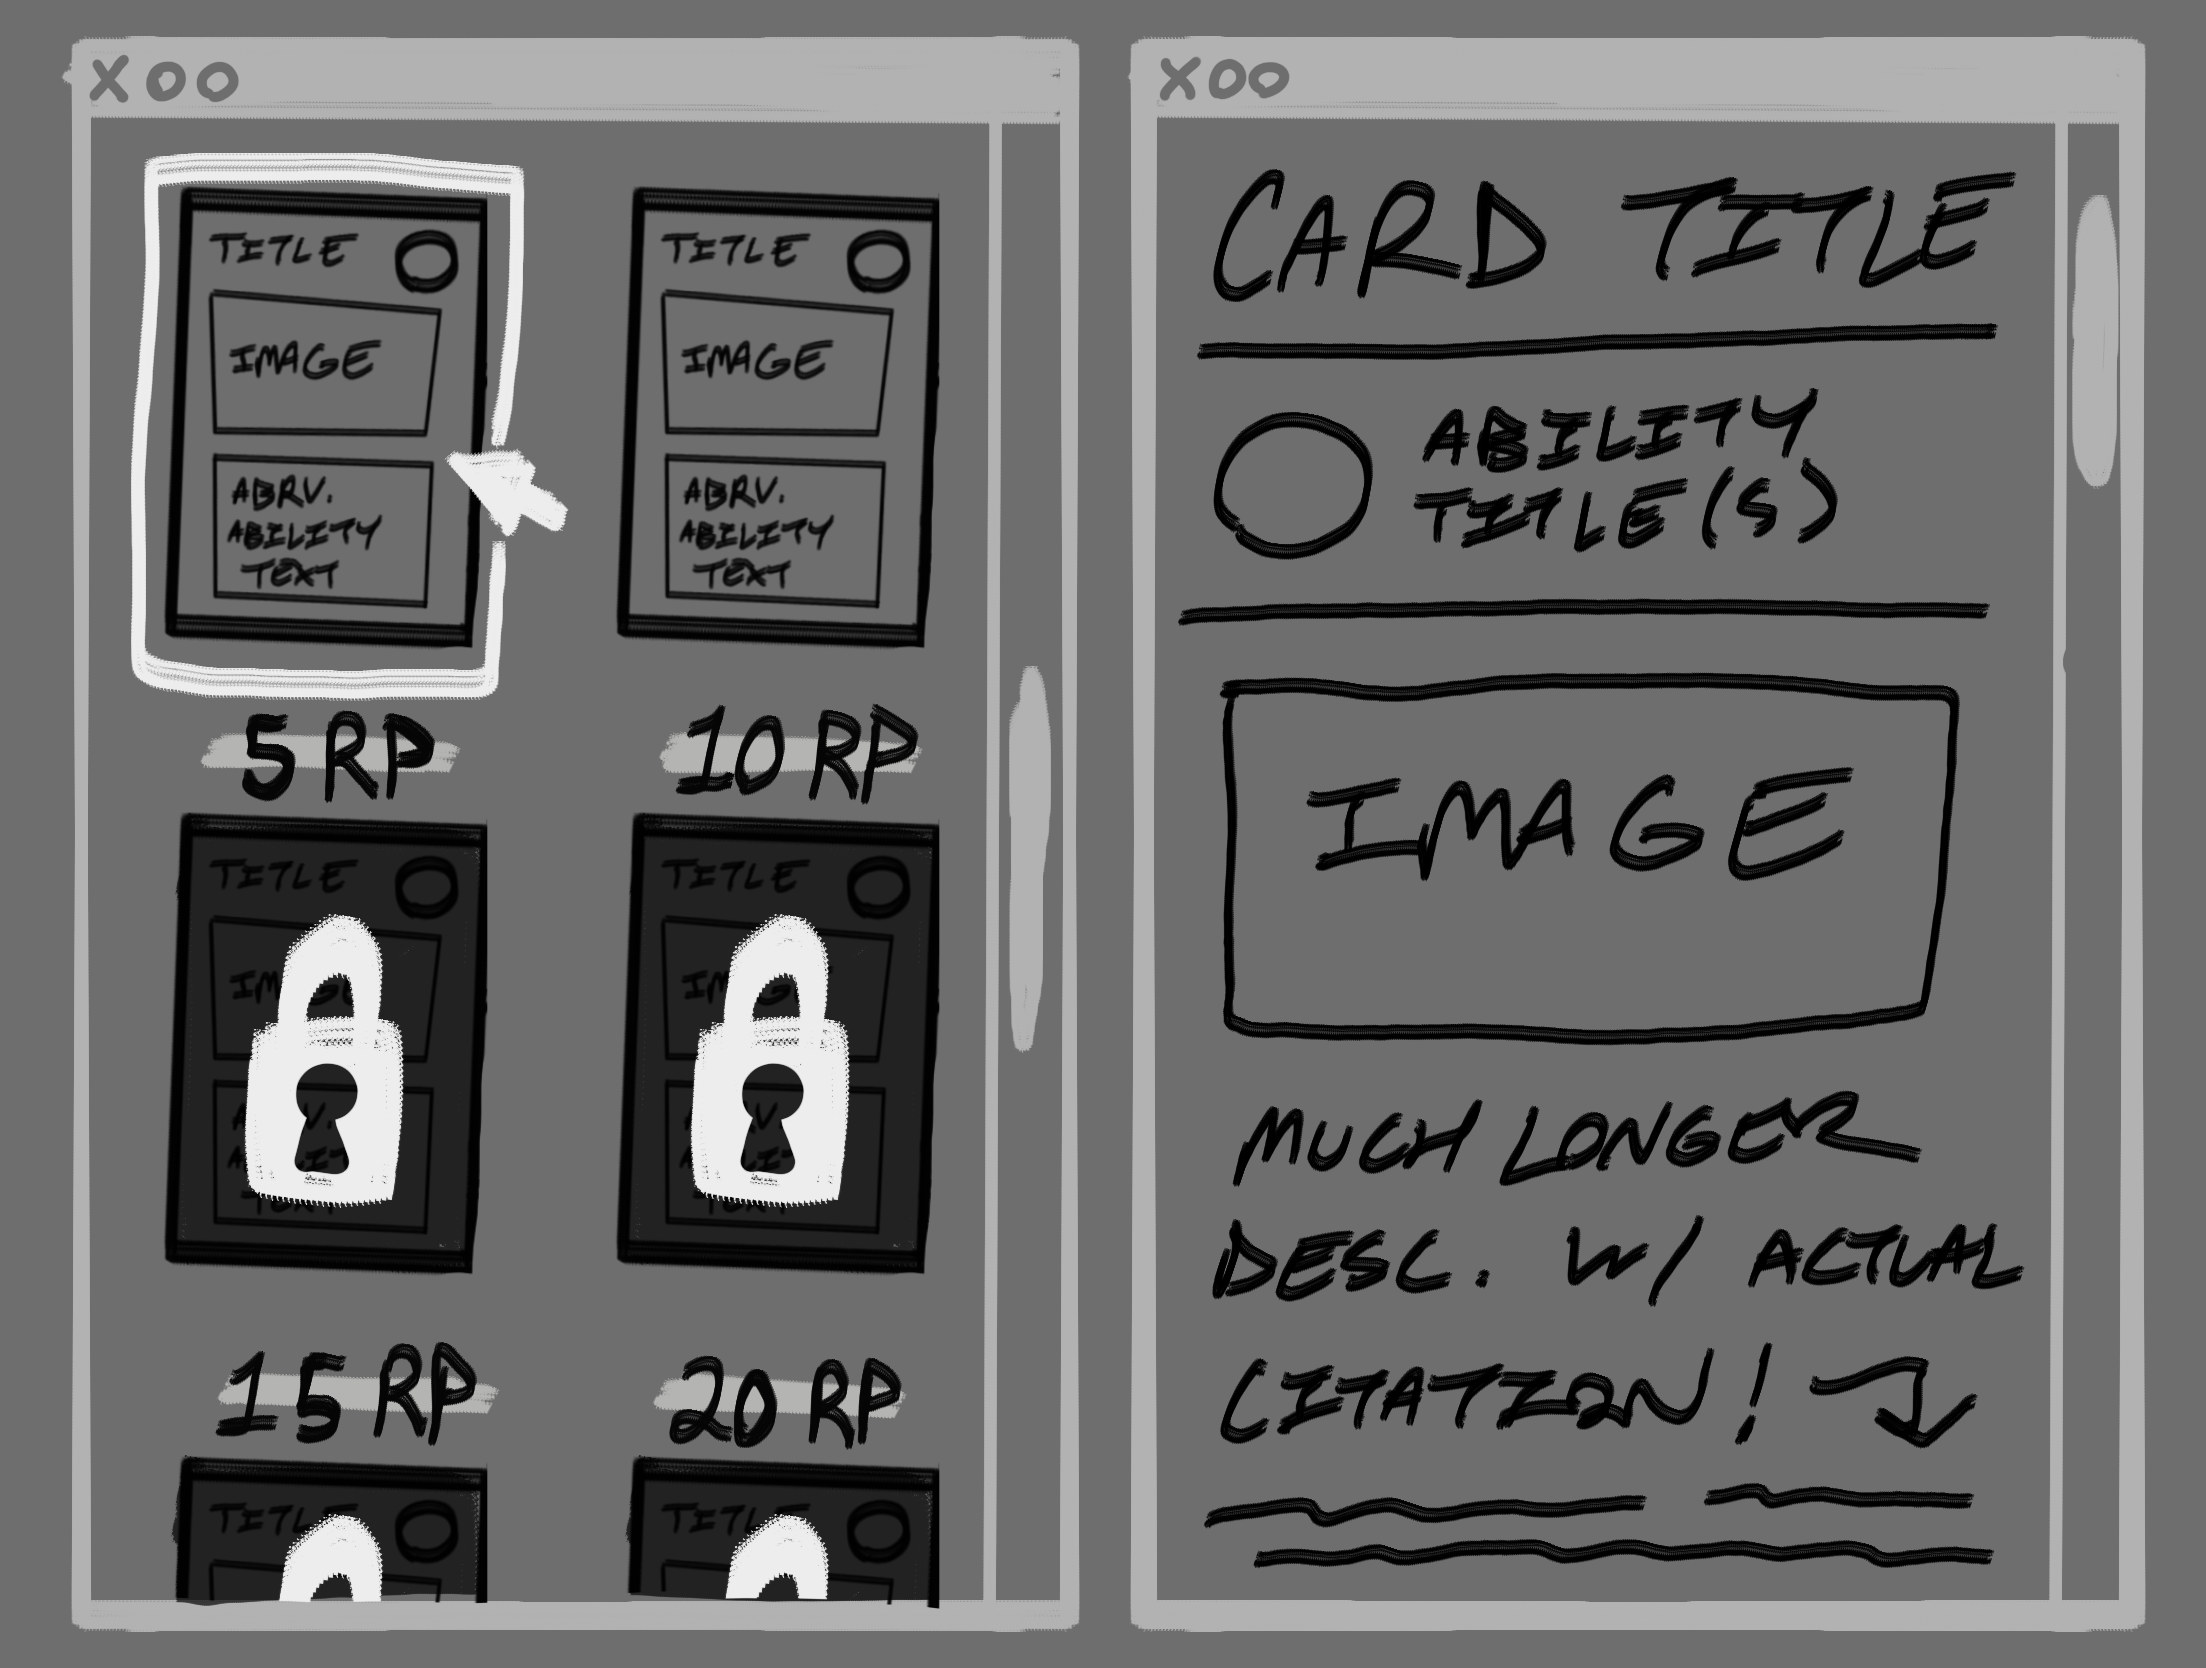 XOO
TITLE
IMAGE
ABRV.
ABILITY
TEXT
TITLE
IMAGE
ABRV.
ABILITY
TEXT
5 RP
10 RP
TITLE
TITLE
15 RP
20 RP
TITLE
TITLE
XOO
CARD TITLE
ABILITY
TITLE(S)
IMAGE
MUCH LONGER
DESC. W/ ACTUAL
CITATION!